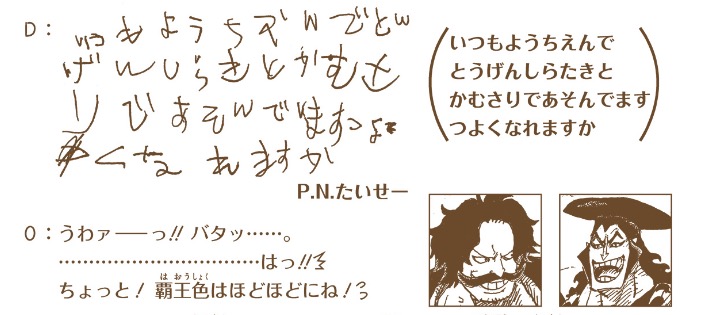 D：いつもようちえんでとう
げんしらきとかむさ
りであそんでますつよ
くなれますか
いつもようちえんで
とうげんしらたきと
かむさりであそんでます
つよくなれますか
P.N.たいせー
O：うわァ――っ!! バタッ……。
……………………………はっ!!
はおうしょく
ちょっと！ 覇王色はほどほどにね！